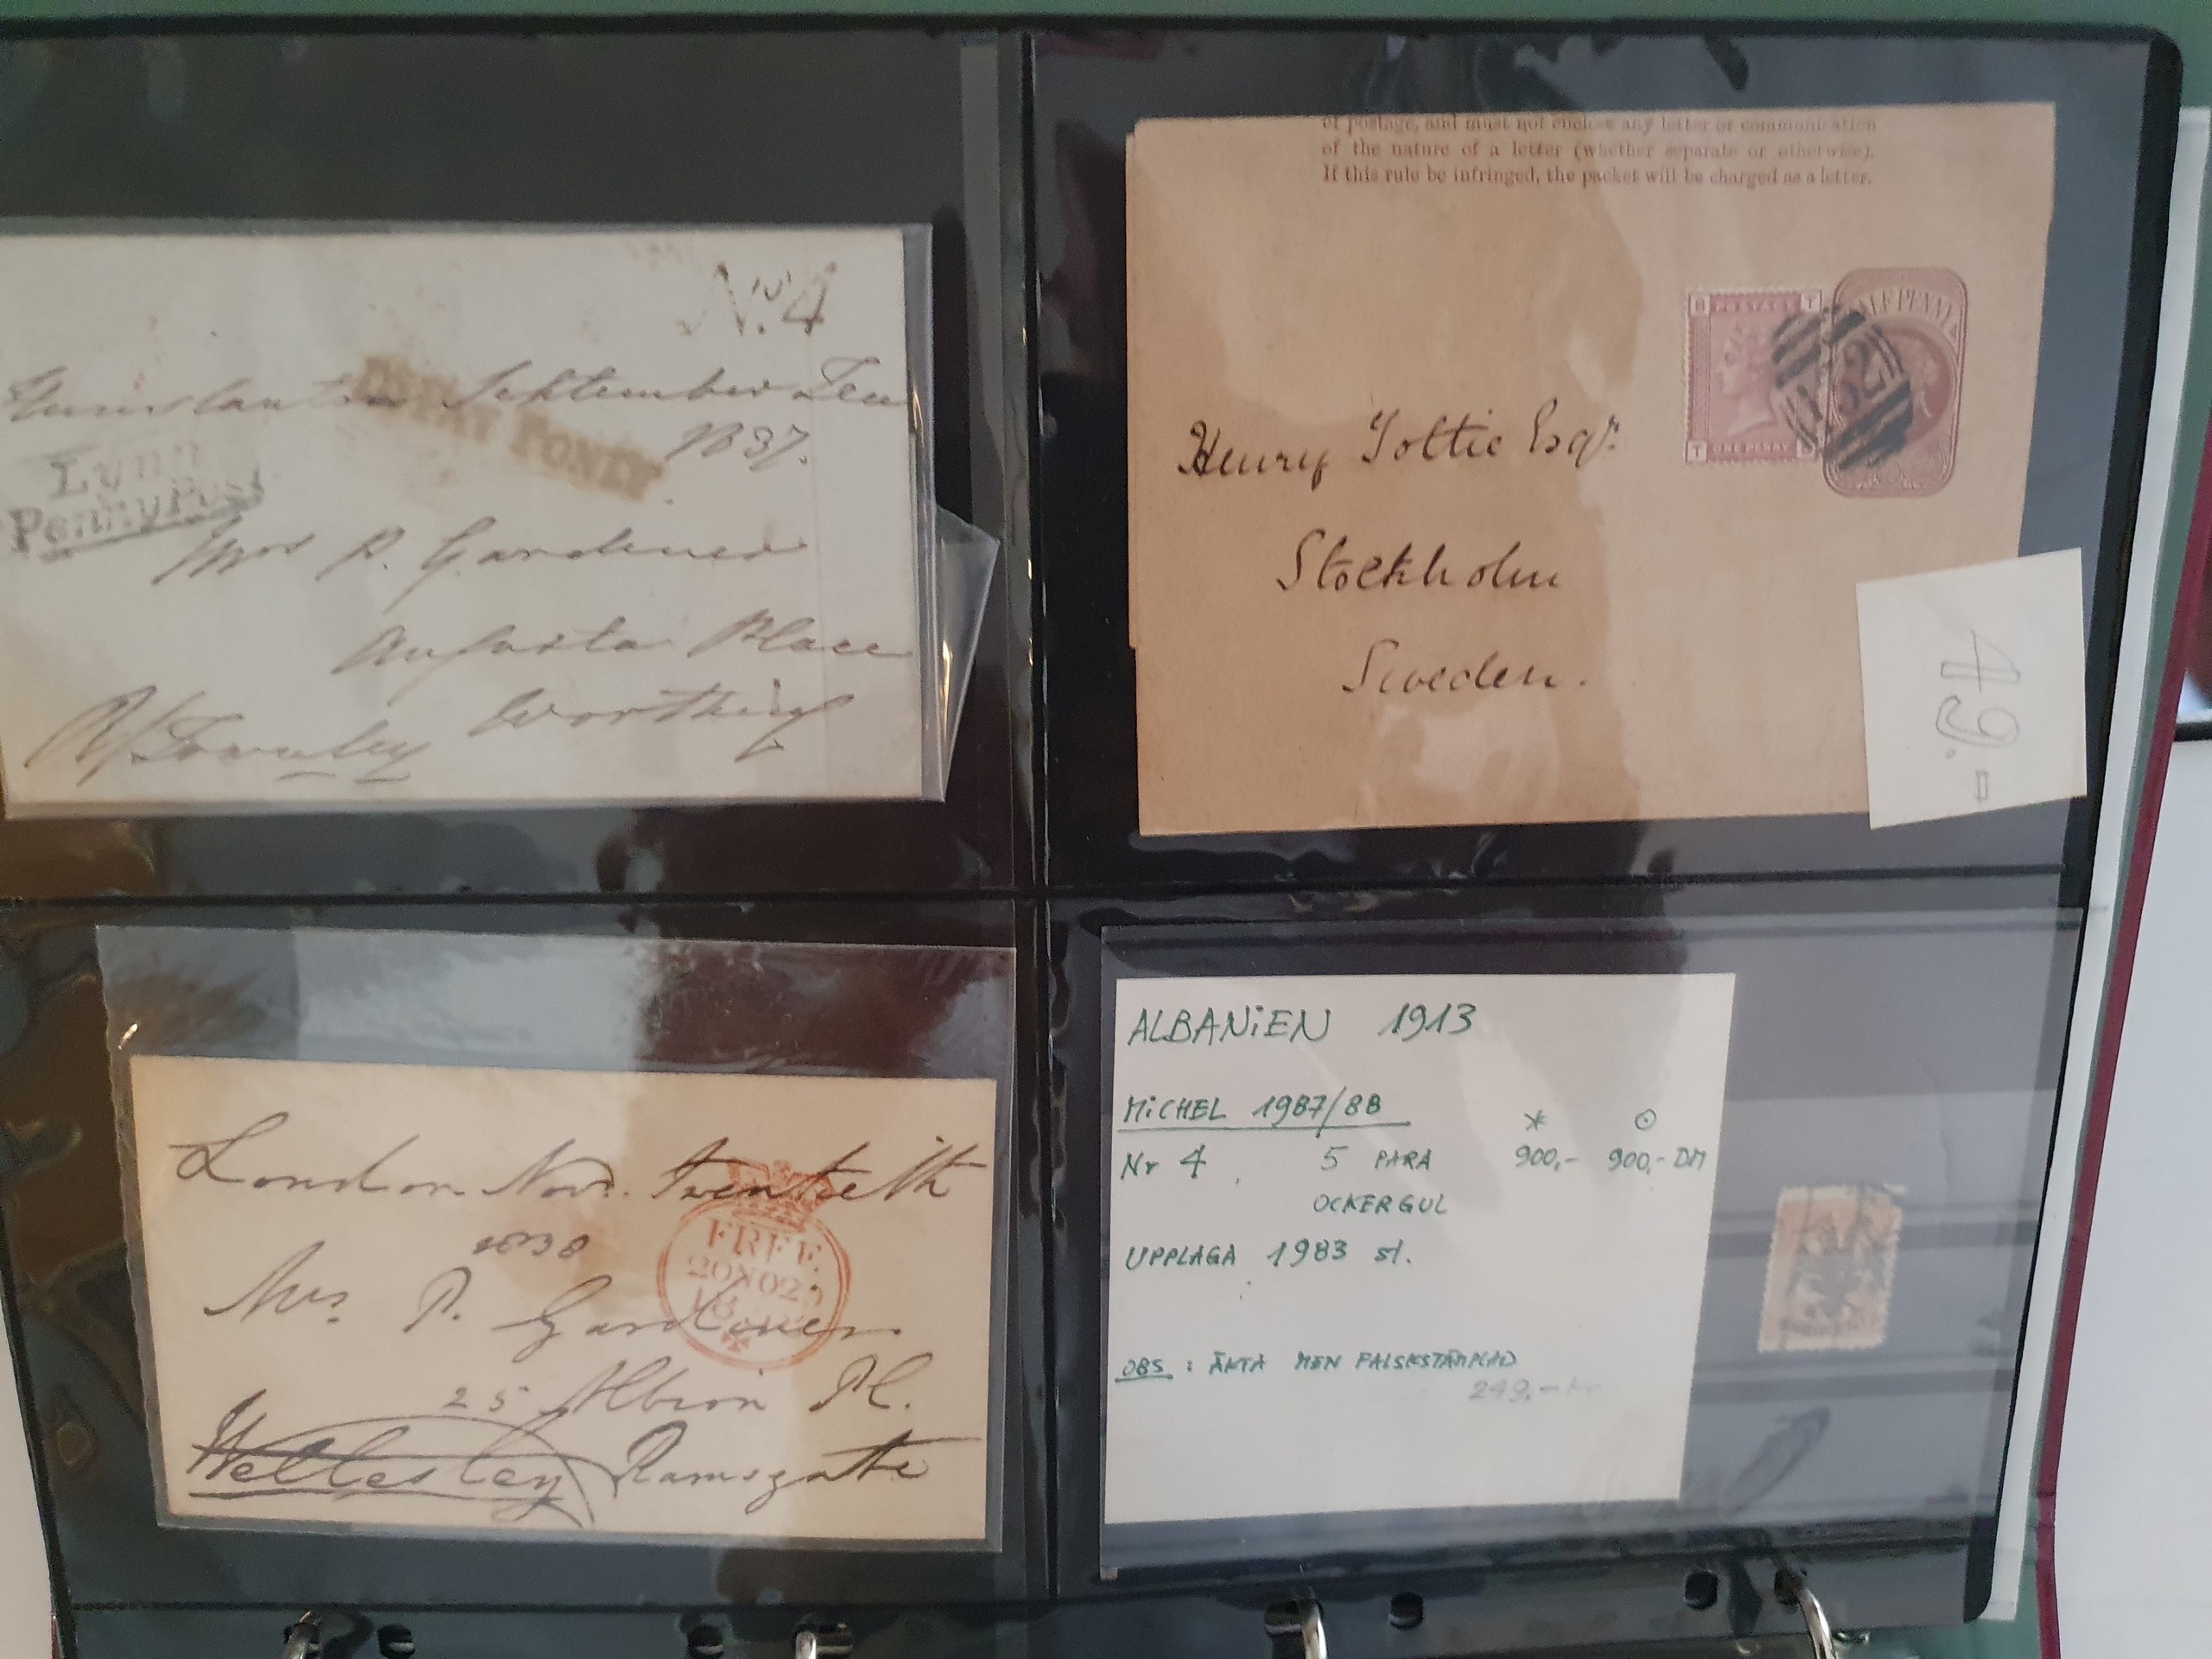 No. 4
September Ten
1837.
Lynn
Penny Post
Mrs P. Gardiner
Augusta Place
Worthing
of postage, and must not enclose any letter or communication
of the nature of a letter (whether separate or otherwise).
If this rule be infringed, the packet will be charged as a letter.
B POSTAGE T
T ONE PENNY B
HALFPENNY
Henry Tottie Esqr.
Stockholm
Sweden.
49.-
London Nov. twentieth
1838
FREE
20NO20
18
Mrs. P. Gardiner
25 Albion Pl.
Wellesley Ramsgate
ALBANiEN 1913
MiCHEL 1987/88
Nr 4 5 PARA 900,- 900,- DM
OCKERGUL
UPPLAGA 1983 st.
OBS: ÄKTA MEN FALSKSTÄMPLAD
249.- Kr